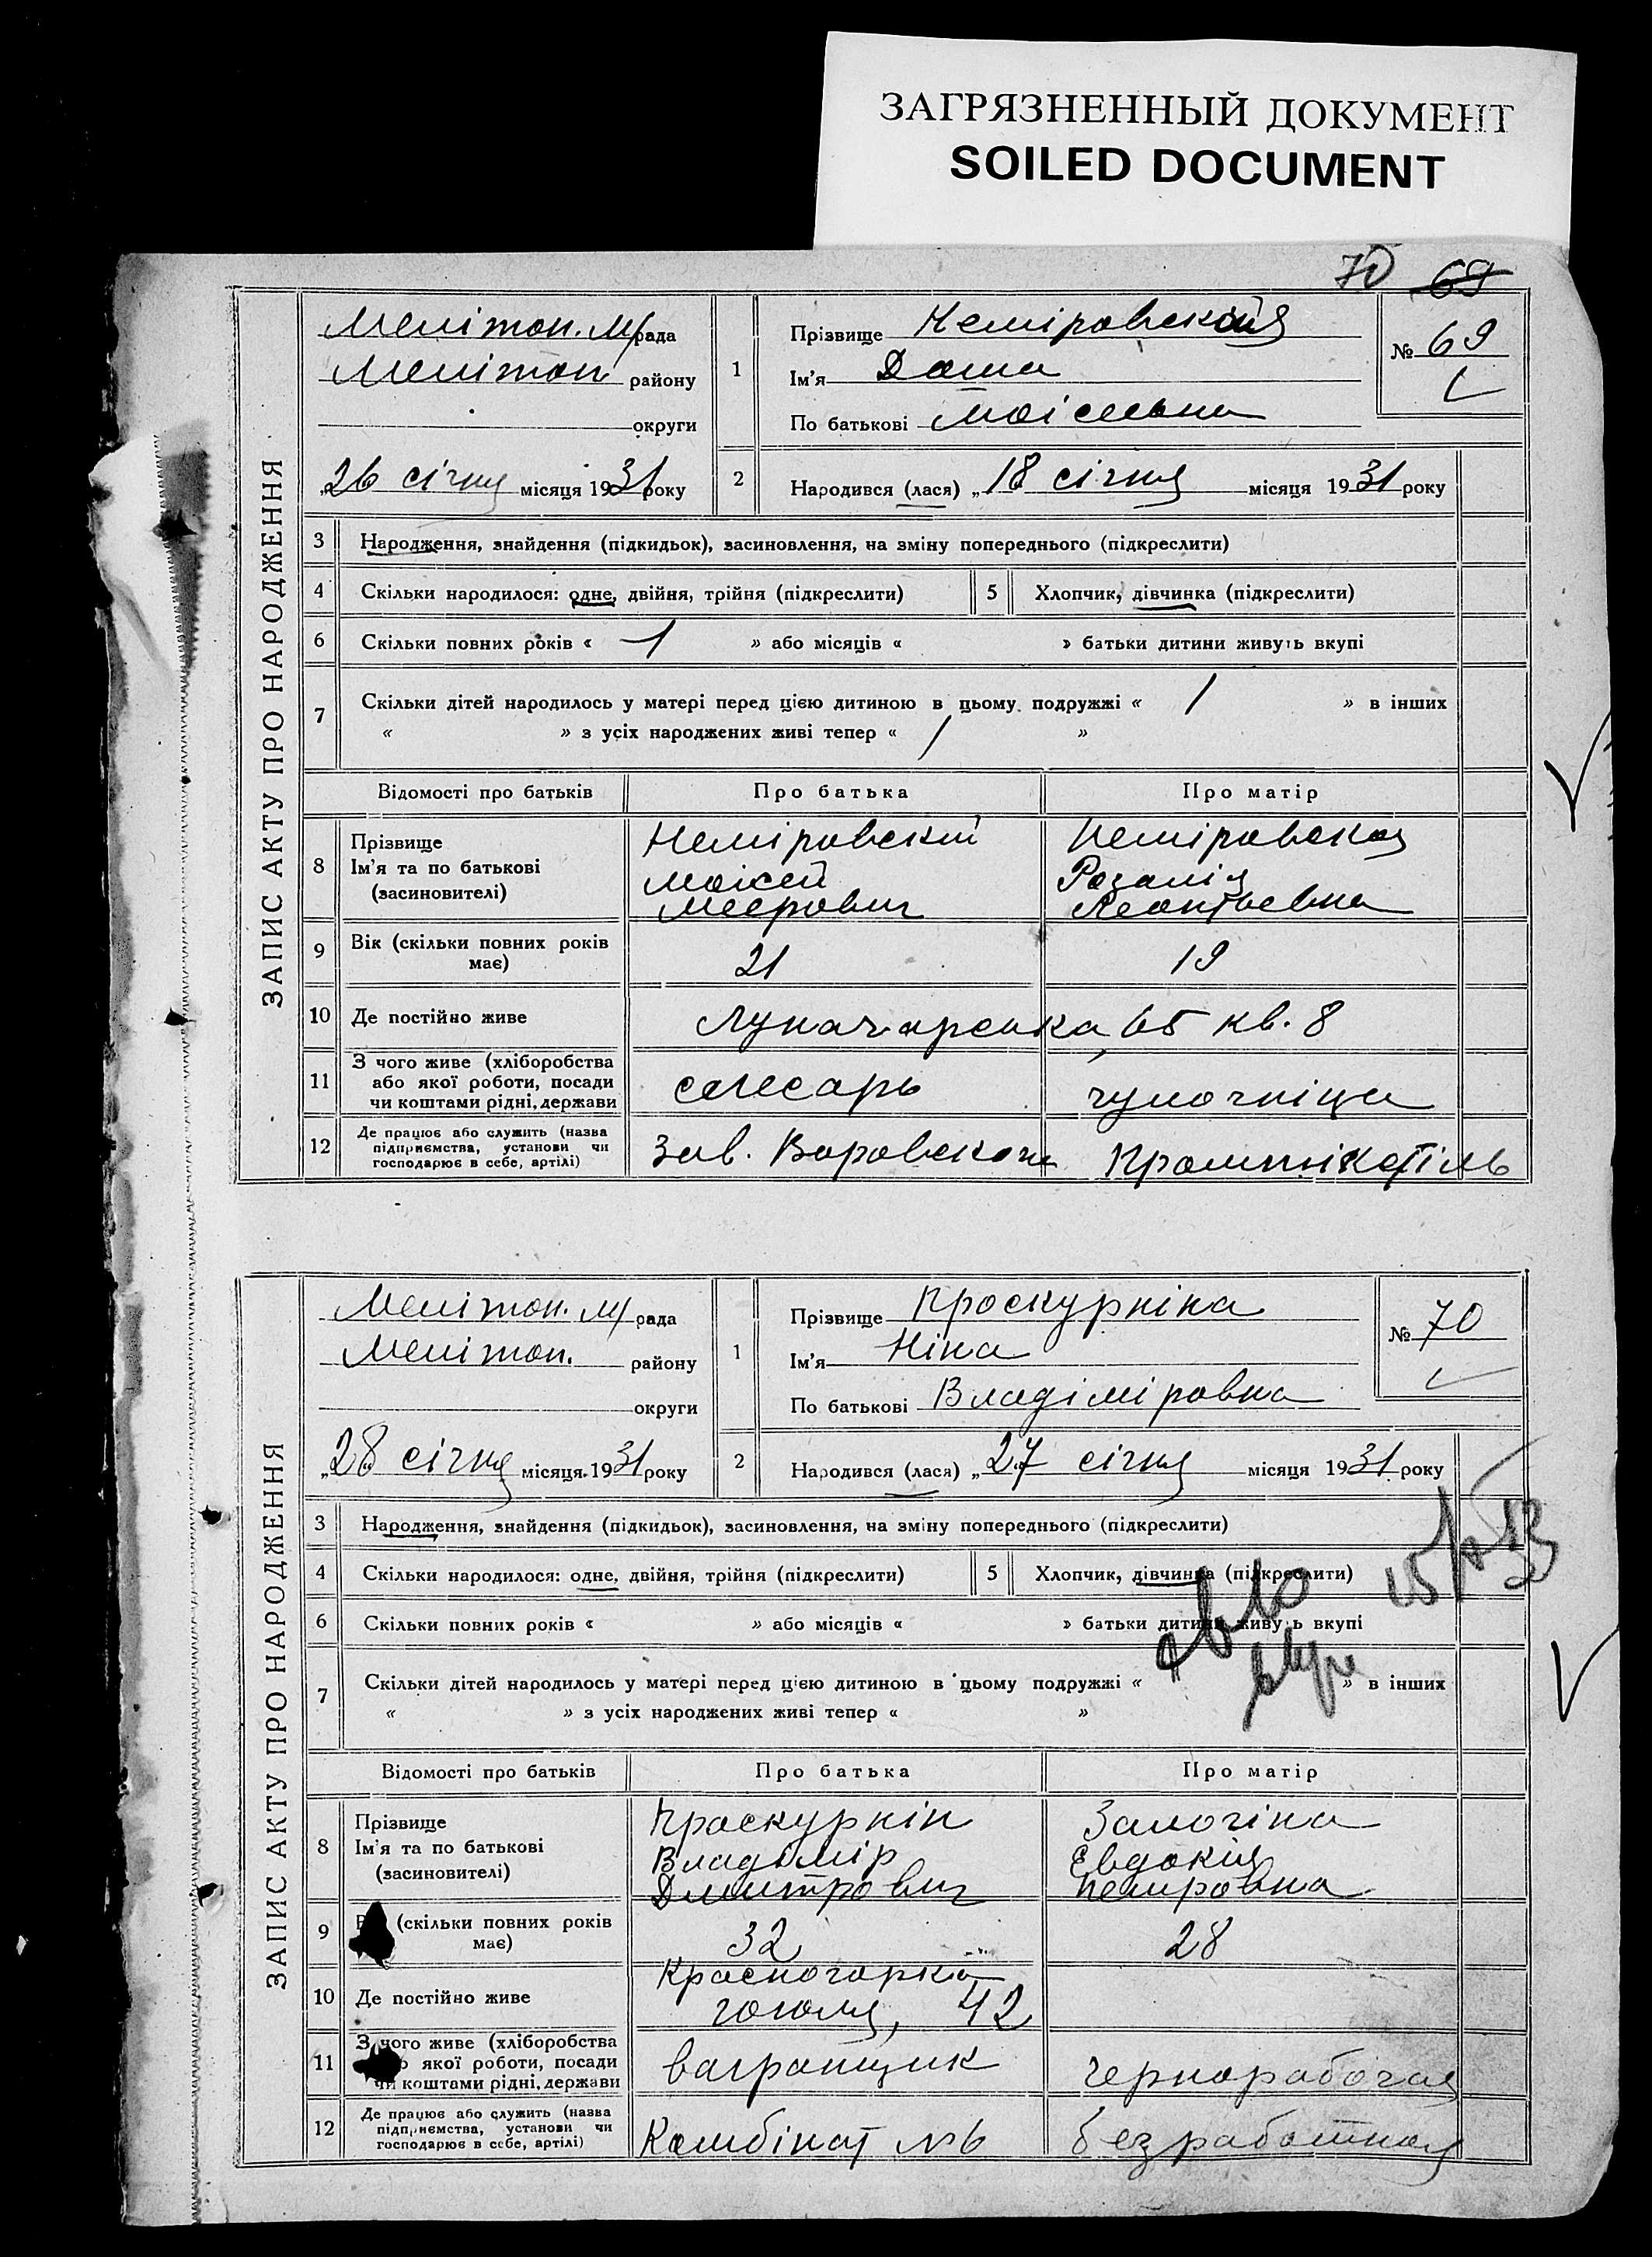 ЗАГРЯЗНЕННЫЙ ДОКУМЕНТ
SOILED DOCUMENT
70 69
ЗАПИС АКТУ ПРО НАРОДЖЕННЯ
Мелітоп. м/рада
Мелітоп району
округи
„26 січня місяця 1931 року
1
Прізвище Неміровская
Ім'я Доша
По батькові Моісеевна
№ 69
2
Народився (лася) „18 січня місяця 1931 року
3 Народження, знайдення (підкидьок), засиновлення, на зміну попереднього (підкреслити)
4 Скільки народилося: одне, двійня, трійня (підкреслити) 5 Хлопчик, дівчинка (підкреслити)
6 Скільки повних років « 1 » або місяців « » батьки дитини живуть вкупі
7 Скільки дітей народилось у матері перед цією дитиною в цьому подружжі « / » в інших
« » з усіх народжених живі тепер « / »
Відомості про батьків Про батька Про матір
8 Прізвище Неміровский Неміровская
Ім'я та по батькові Моісей Розалія
(засиновителі) Меерович Леонтьевна
9 Вік (скільки повних років має) 21 19
10 Де постійно живе Луначарська, 65 кв. 8
11 З чого живе (хліборобства
або якої роботи, посади слесарь чулочніца
чи коштами рідні, держави
12 Де працює або служить (назва
підприємства, установи чи Зав. Воровского
господарює в себе, артілі)
ЗАПИС АКТУ ПРО НАРОДЖЕННЯ
Мелітоп. м/рада
Мелітоп. району
округи
„28 січня місяця 1931 року
1
Прізвище Проскурніна
Ім'я Ніна
По батькові Владіміровна
№ 70
2
Народився (лася) „27 січня місяця 1931 року
3 Народження, знайдення (підкидьок), засиновлення, на зміну попереднього (підкреслити)
4 Скільки народилося: одне, двійня, трійня (підкреслити) 5 Хлопчик, дівчинка (підкреслити)
6 Скільки повних років « » або місяців « » батьки дитини живуть вкупі
7 Скільки дітей народилось у матері перед цією дитиною в цьому подружжі « » в інших
« » з усіх народжених живі тепер « »
Відомості про батьків Про батька Про матір
8 Прізвище Проскурнін Залогіна
Ім'я та по батькові Владімір Евдокия
(засиновителі) Дмитрович Петровна
9 (скільки повних років має) 32 28
10 Де постійно живе Красногорка
Гоголя, 42
11 З чого живе (хліборобства
якої роботи, посади вагранщик чернорабочая
чи коштами рідні, держави
12 Де працює або служить (назва
підприємства, установи чи Комбінат №6 безработная
господарює в себе, артілі)